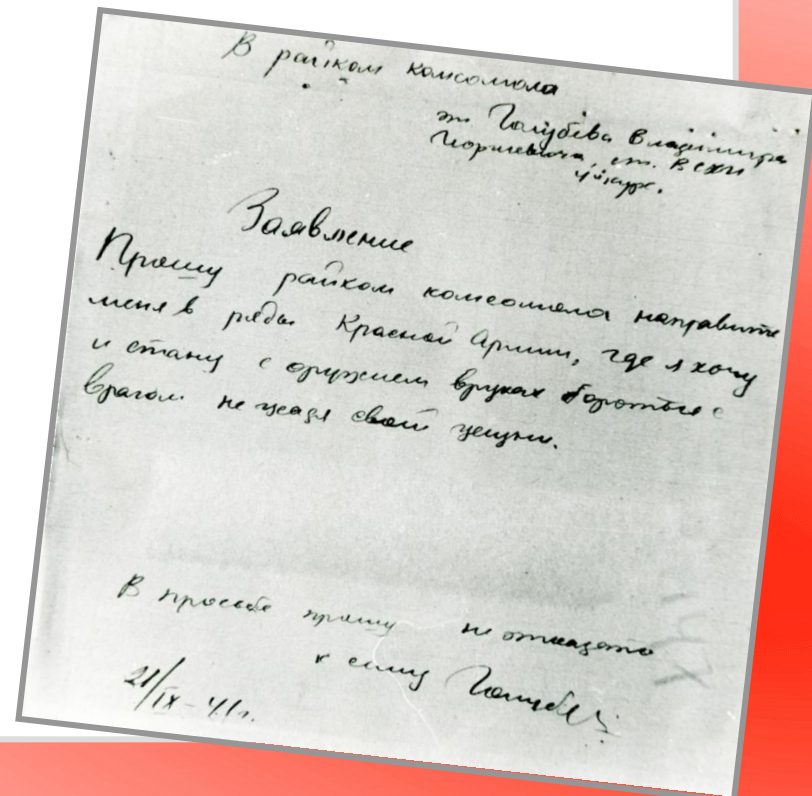 В райком комсомола
от Голубева Владимира
ст. ВСХИ
курс.
Заявление
Прошу райком комсомола направить
меня в ряды Красной Армии, где я хочу
и стану с оружием в руках бороться с
врагом не щадя своей
В просьбе прошу не отказать
к сему Голубев
21/IX-41г.